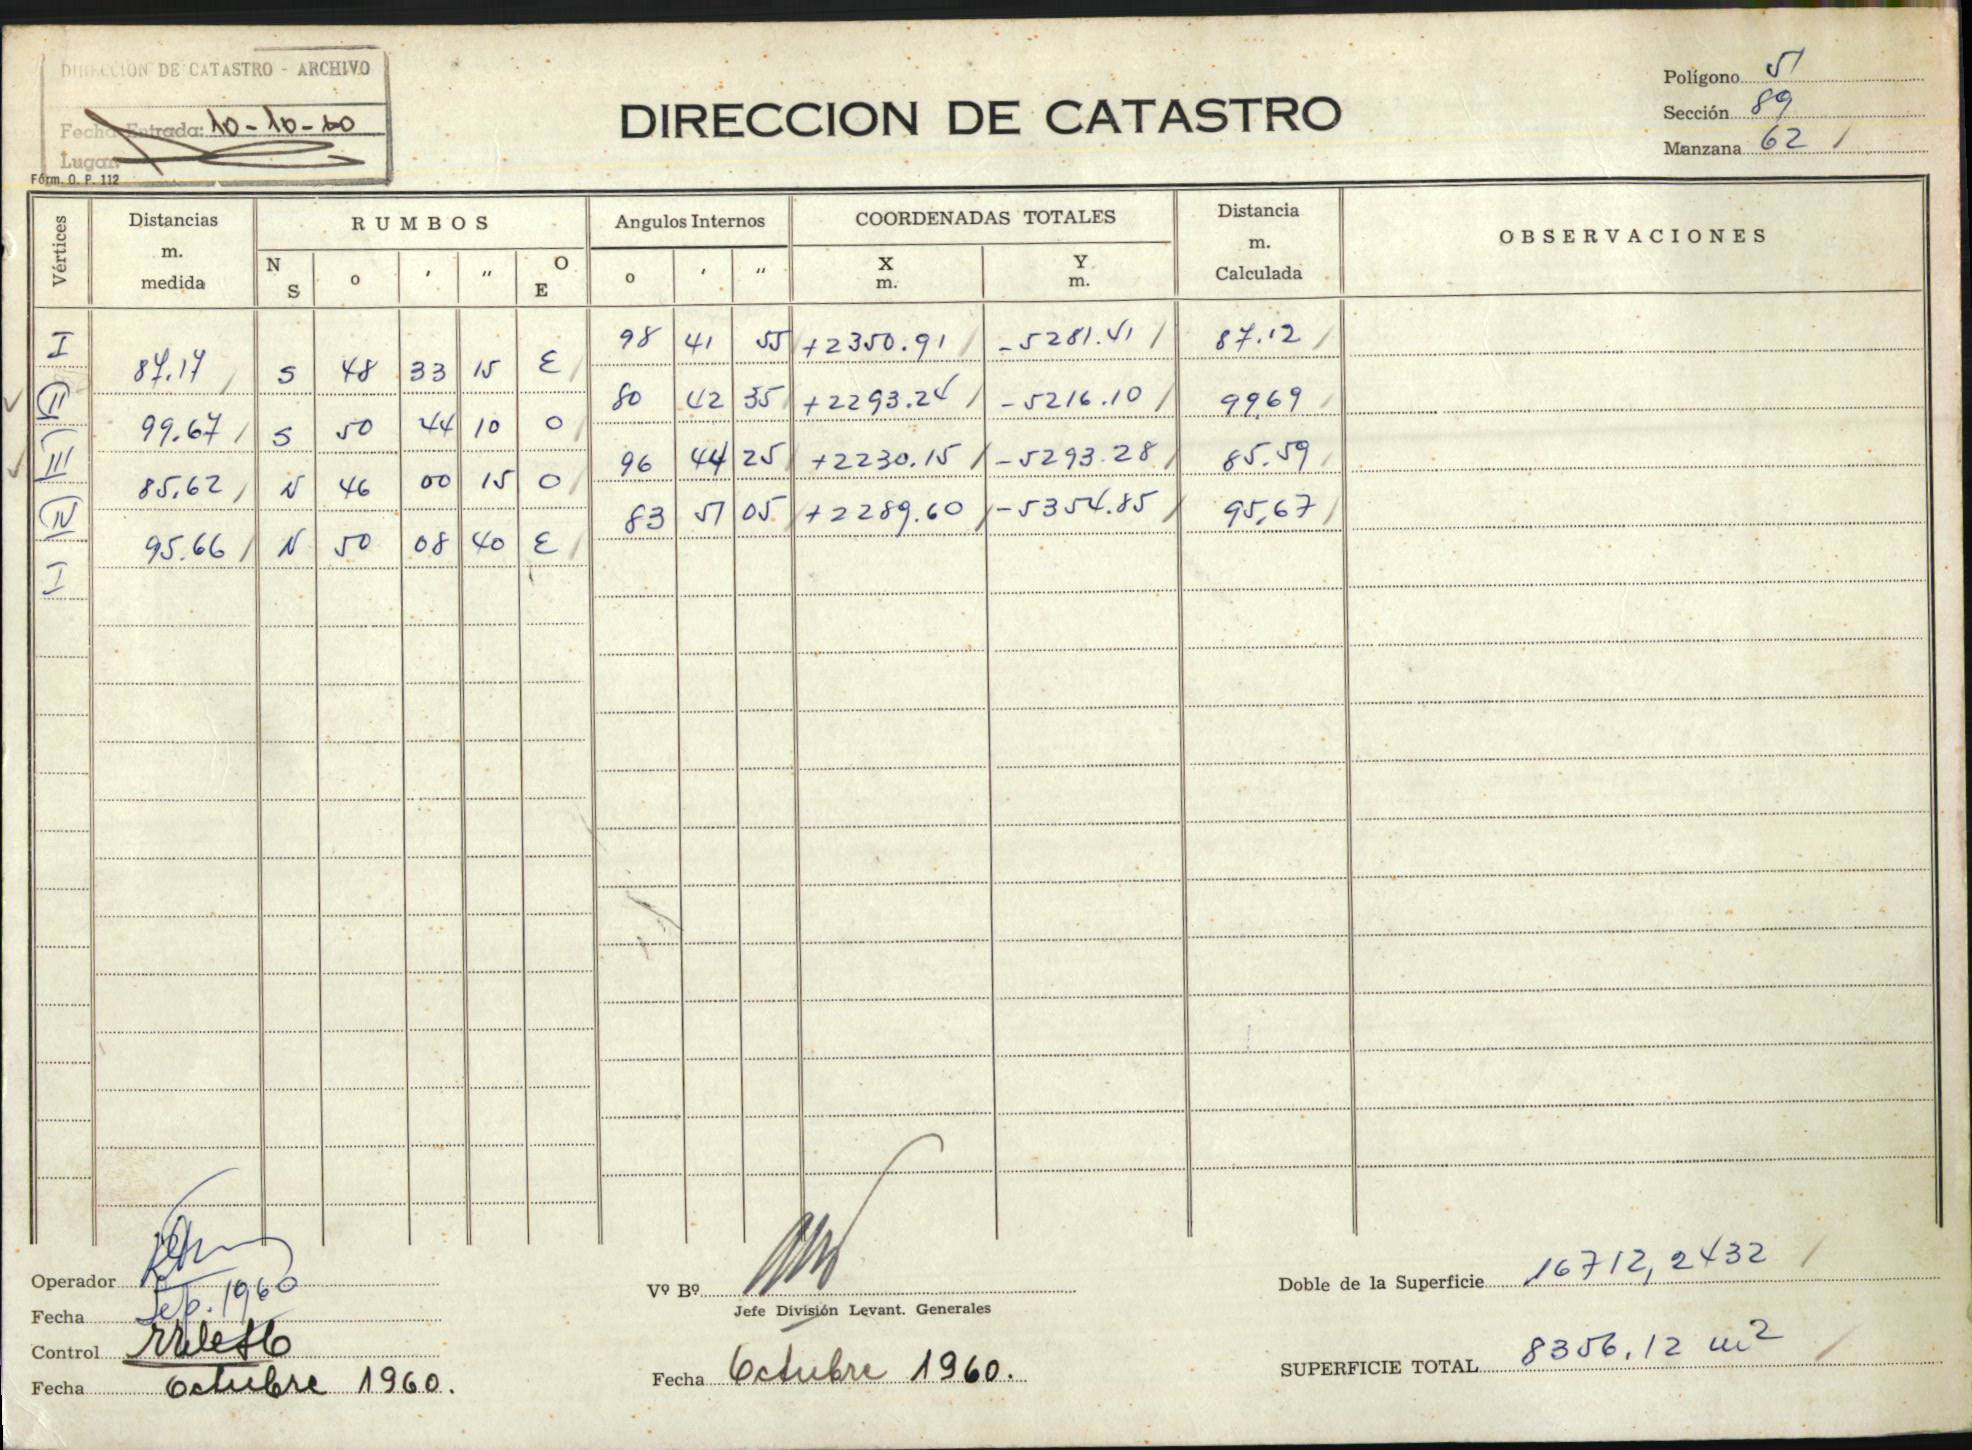 DIRECCION DE CATASTRO - ARCHIVO
Fecha Entrada: 10-10-60
Lugar:
Fórm. O. P. 112
DIRECCION DE CATASTRO
Polígono 51
Sección 89
Manzana 62 /
Vértices Distancias m. medida RUMBOS N S o ′ ″ O E Angulos Internos o ′ ″ COORDENADAS TOTALES X m. Y m. Distancia m. Calculada OBSERVACIONES
I 98 41 55 / +2350.91 / -5281.41 / 87.12 /
87.17 / S 48 33 15 E /
II 80 42 35 / +2293.24 / -5216.10 / 99.69 /
99.67 / S 50 44 10 O /
III 96 44 25 / +2230.15 / -5293.28 / 85.59 /
85.62 / N 46 00 15 O /
IV 83 51 05 / +2289.60 / -5354.85 / 95.67 /
95.66 / N 50 08 40 E /
I
Operador
Fecha Sep. 1960
Control
Fecha Octubre 1960.
Vº Bº
Jefe División Levant. Generales
Fecha Octubre 1960.
Doble de la Superficie 16712,2432 /
SUPERFICIE TOTAL 8356.12 m2 /